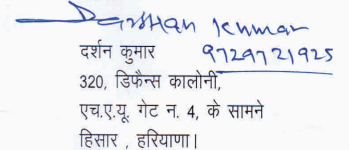 Darshan Kumar
दर्शन कुमार 9729721925
320, डिफैन्स कालोनी,
एच.ए.यू. गेट न. 4, के सामने
हिसार , हरियाणा।